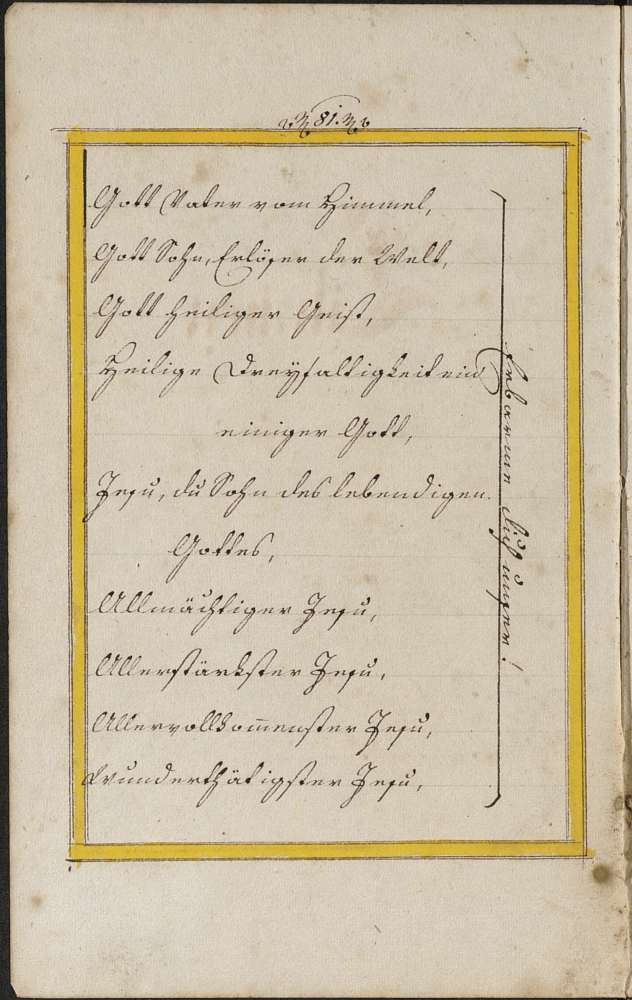 81.
Gott Vater vom Himmel,
Gott Sohn, Erlöser der Welt,
Gott heiliger Geist,
Heilige Dreyfaltigkeit ein
einiger Gott,
Jesu, du Sohn des lebendigen
Gottes,
Allmächtiger Jesu,
Allerstärkster Jesu,
Allervollkom̅enster Jesu,
Wunderthätigster Jesu,
Erbarme dich unser!